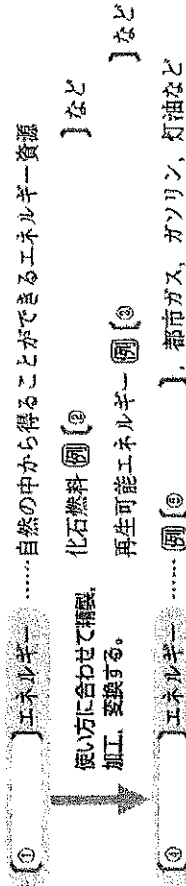 〔① 〕エネルギー……自然の中から得ることができるエネルギー資源
化石燃料 例〔② 〕など
再生可能エネルギー 例〔③ 〕など
使い方に合わせて精製,
加工, 変換する。
〔④ 〕エネルギー……例〔⑤ 〕, 都市ガス, ガソリン, 灯油など